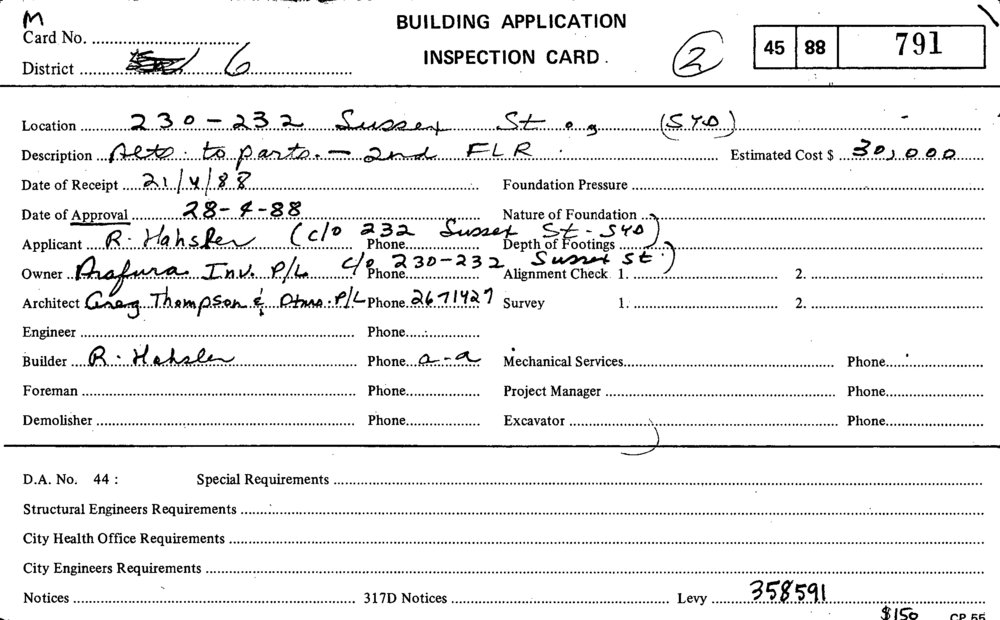 M
BUILDING APPLICATION
Card No.
INSPECTION CARD.
2
45 88 791
District 6
Location 230-232 Sussex St (SYD)
Description Alts. to parts. - 2nd FLR. Estimated Cost $ 30,000
Date of Receipt 21/4/88 Foundation Pressure
Date of Approval 28-4-88 Nature of Foundation
Applicant R. Hahsler (c/o 232 Sussex St-SYD) Phone Depth of Footings
Owner Arafura Inv. P/L c/o 230-232 Sussex St.) Phone Alignment Check 1. 2.
Architect Greg Thompson & Ptnrs. P/L Phone 2671427 Survey 1. 2.
Engineer Phone
Builder R. Hahsler Phone a-a Mechanical Services Phone
Foreman Phone Project Manager Phone
Demolisher Phone Excavator Phone
D.A. No. 44 : Special Requirements
Structural Engineers Requirements
City Health Office Requirements
City Engineers Requirements
Notices 317D Notices Levy 358591
$150 CP 55